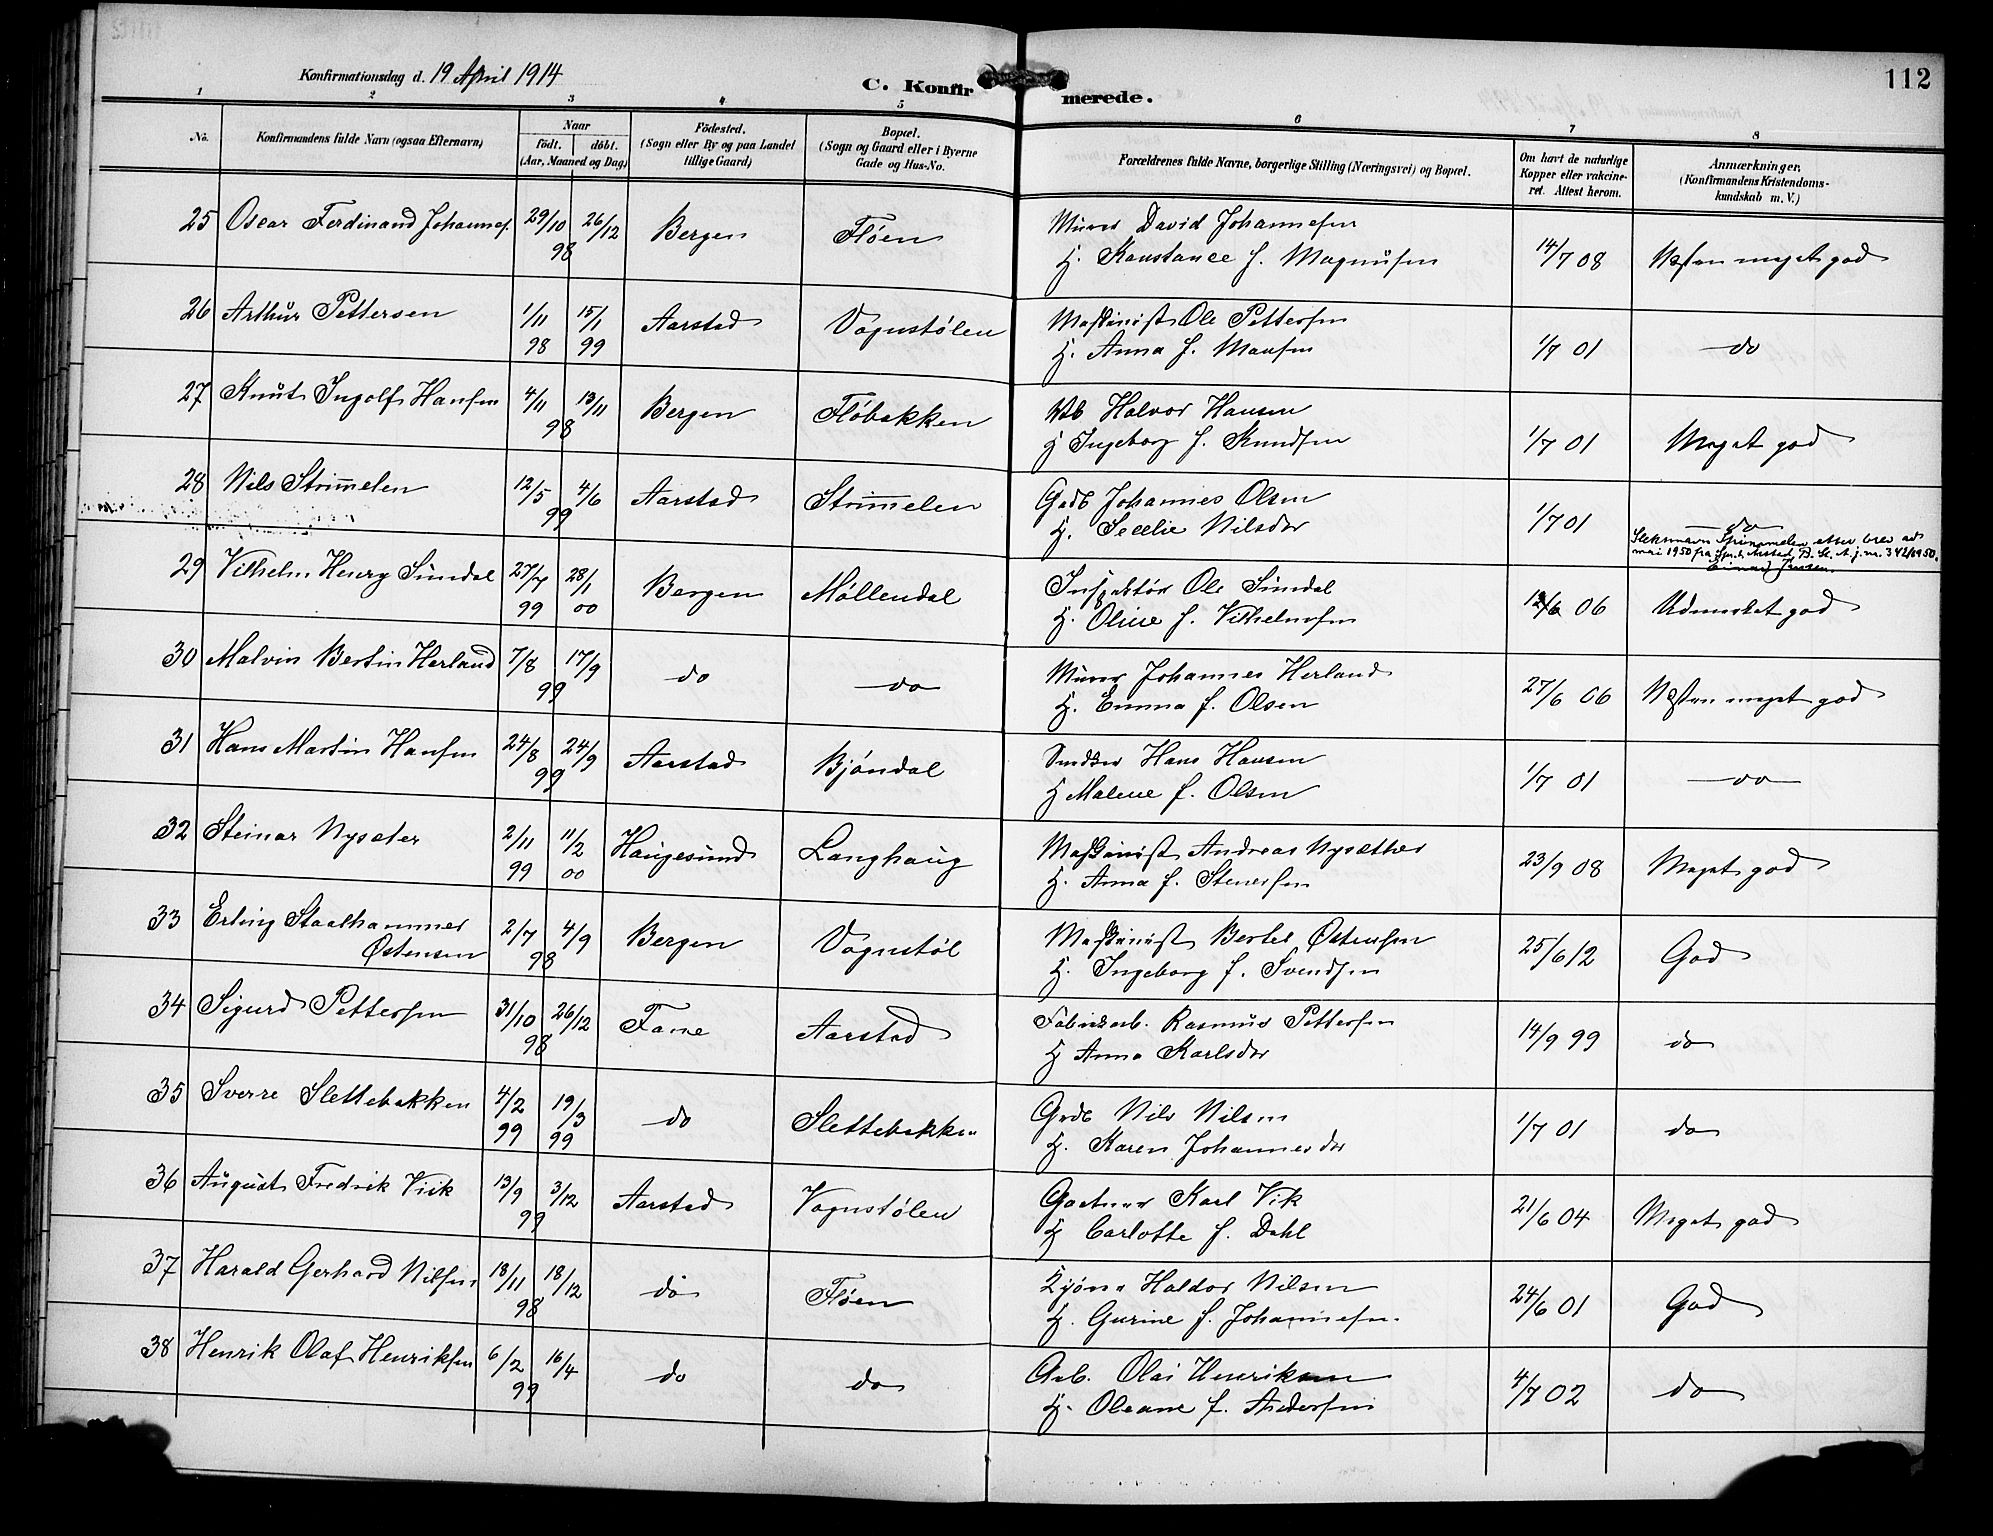 Konfirmationsdag d. 19 April 1914
C. Konfirmerede.
112
1 2 3 4 5 6 7 8
No.
Konfirmandens fulde Navn (ogsaa Efternavn)
Naar
födt. döbt.
(Aar, Maaned og Dag)
Födested.
(Sogn eller By og paa Landet
tillige Gaard)
Bopæl.
(Sogn og Gaard eller i Byerne
Gade og Hus-No.
Forældrenes fulde Navne, borgerlige Stilling (Næringsvei) og Bopæl.
Om havt de naturlige
Kopper eller vakcine-
ret. Attest herom.
Anmærkninger.
(Konfirmandens Kristendoms-
kundskab m. V.)
25 Oscar Ferdinand Johannes. 29/10 26/12 98 Bergen Fløen
Murer David Johannesen
H. Konstance f. Magnusen 14/7 08 Næsten meget god
26 Arthur Pettersen 1/11 98 15/1 99 Aarstad Vognstølen
Maskinist Ole Pettersen
H. Anna f. Monsen 1/7 01 do
27 Knut Ingolf Hansen 4/11 13/11 98 Bergen Fløbakken
Halvor Hansen
H Ingeborg f. Knudsen 1/7 01 Meget god
28 Nils Strimmelen 12/5 4/6 99 Aarstad Strimmelen
Gadb Johannes Olsen
H. Secelie Nilsdor 1/7 01 do
Slektsnavn etter brev av
mai 1950 fra Spr. t. Årstad, B. St. A. j. nr. 342/1950.
29 Vilhelm Henry Sundal 27/7 99 28/1 00 Bergen Møllendal
Inspektør Ole Sundal
H. Oline f. Vilhelmsen 06 Udmerket god
30 Malvin Bertin Herland 7/8 17/9 99 do do
Murer Johannes Herland
H. Emma f. Olsen 27/6 06 Næsten meget god
31 Hans Martin Hansen 24/8 24/9 99 Aarstad Bjøndal
Hans Hansen
H Malene f. Olsen 1/7 01 do
32 Steinar Nysæter 2/11 99 11/2 00 Haugesund Langhaug
Maskinist Andreas Nysæther
H. Anna f. Stenersen 23/9 08 Meget god
33 Erling Staalhammer
Østensen 2/7 4/9 98 Bergen Vognstøl
Maskinist Bertel Østensen
H. Ingeborg f. Svendsen 25/6 12 God
34 Sigurd Pettersen 31/10 26/12 98 Fane Aarstad
Fabrikarb. Rasmus Pettersen
H Anna Karlsdor 14/9 99 do
35 Sverre Slettebakken 4/2 99 19/3 99 do Slettebakken
Grdb Nils Nilsen
H. Karen Johannesdor 1/7 01 do
36 August Fredrik Viik 13/9 3/12 99 Aarstad Vognstølen
Gartner Karl Vik
H Carlotte f. Dahl 21/6 04 Meget god
37 Harald Gerhard Nilsen 18/11 18/12 98 do Fløen
Haldor Nilsen
H. Gurine f. Johannesen. 24/6 01 God
38 Henrik Olaf Henriksen 6/2 16/4 99 do do
Arb. Olai Henriksen
H. Oleane f. Andersen 4/7 02 do